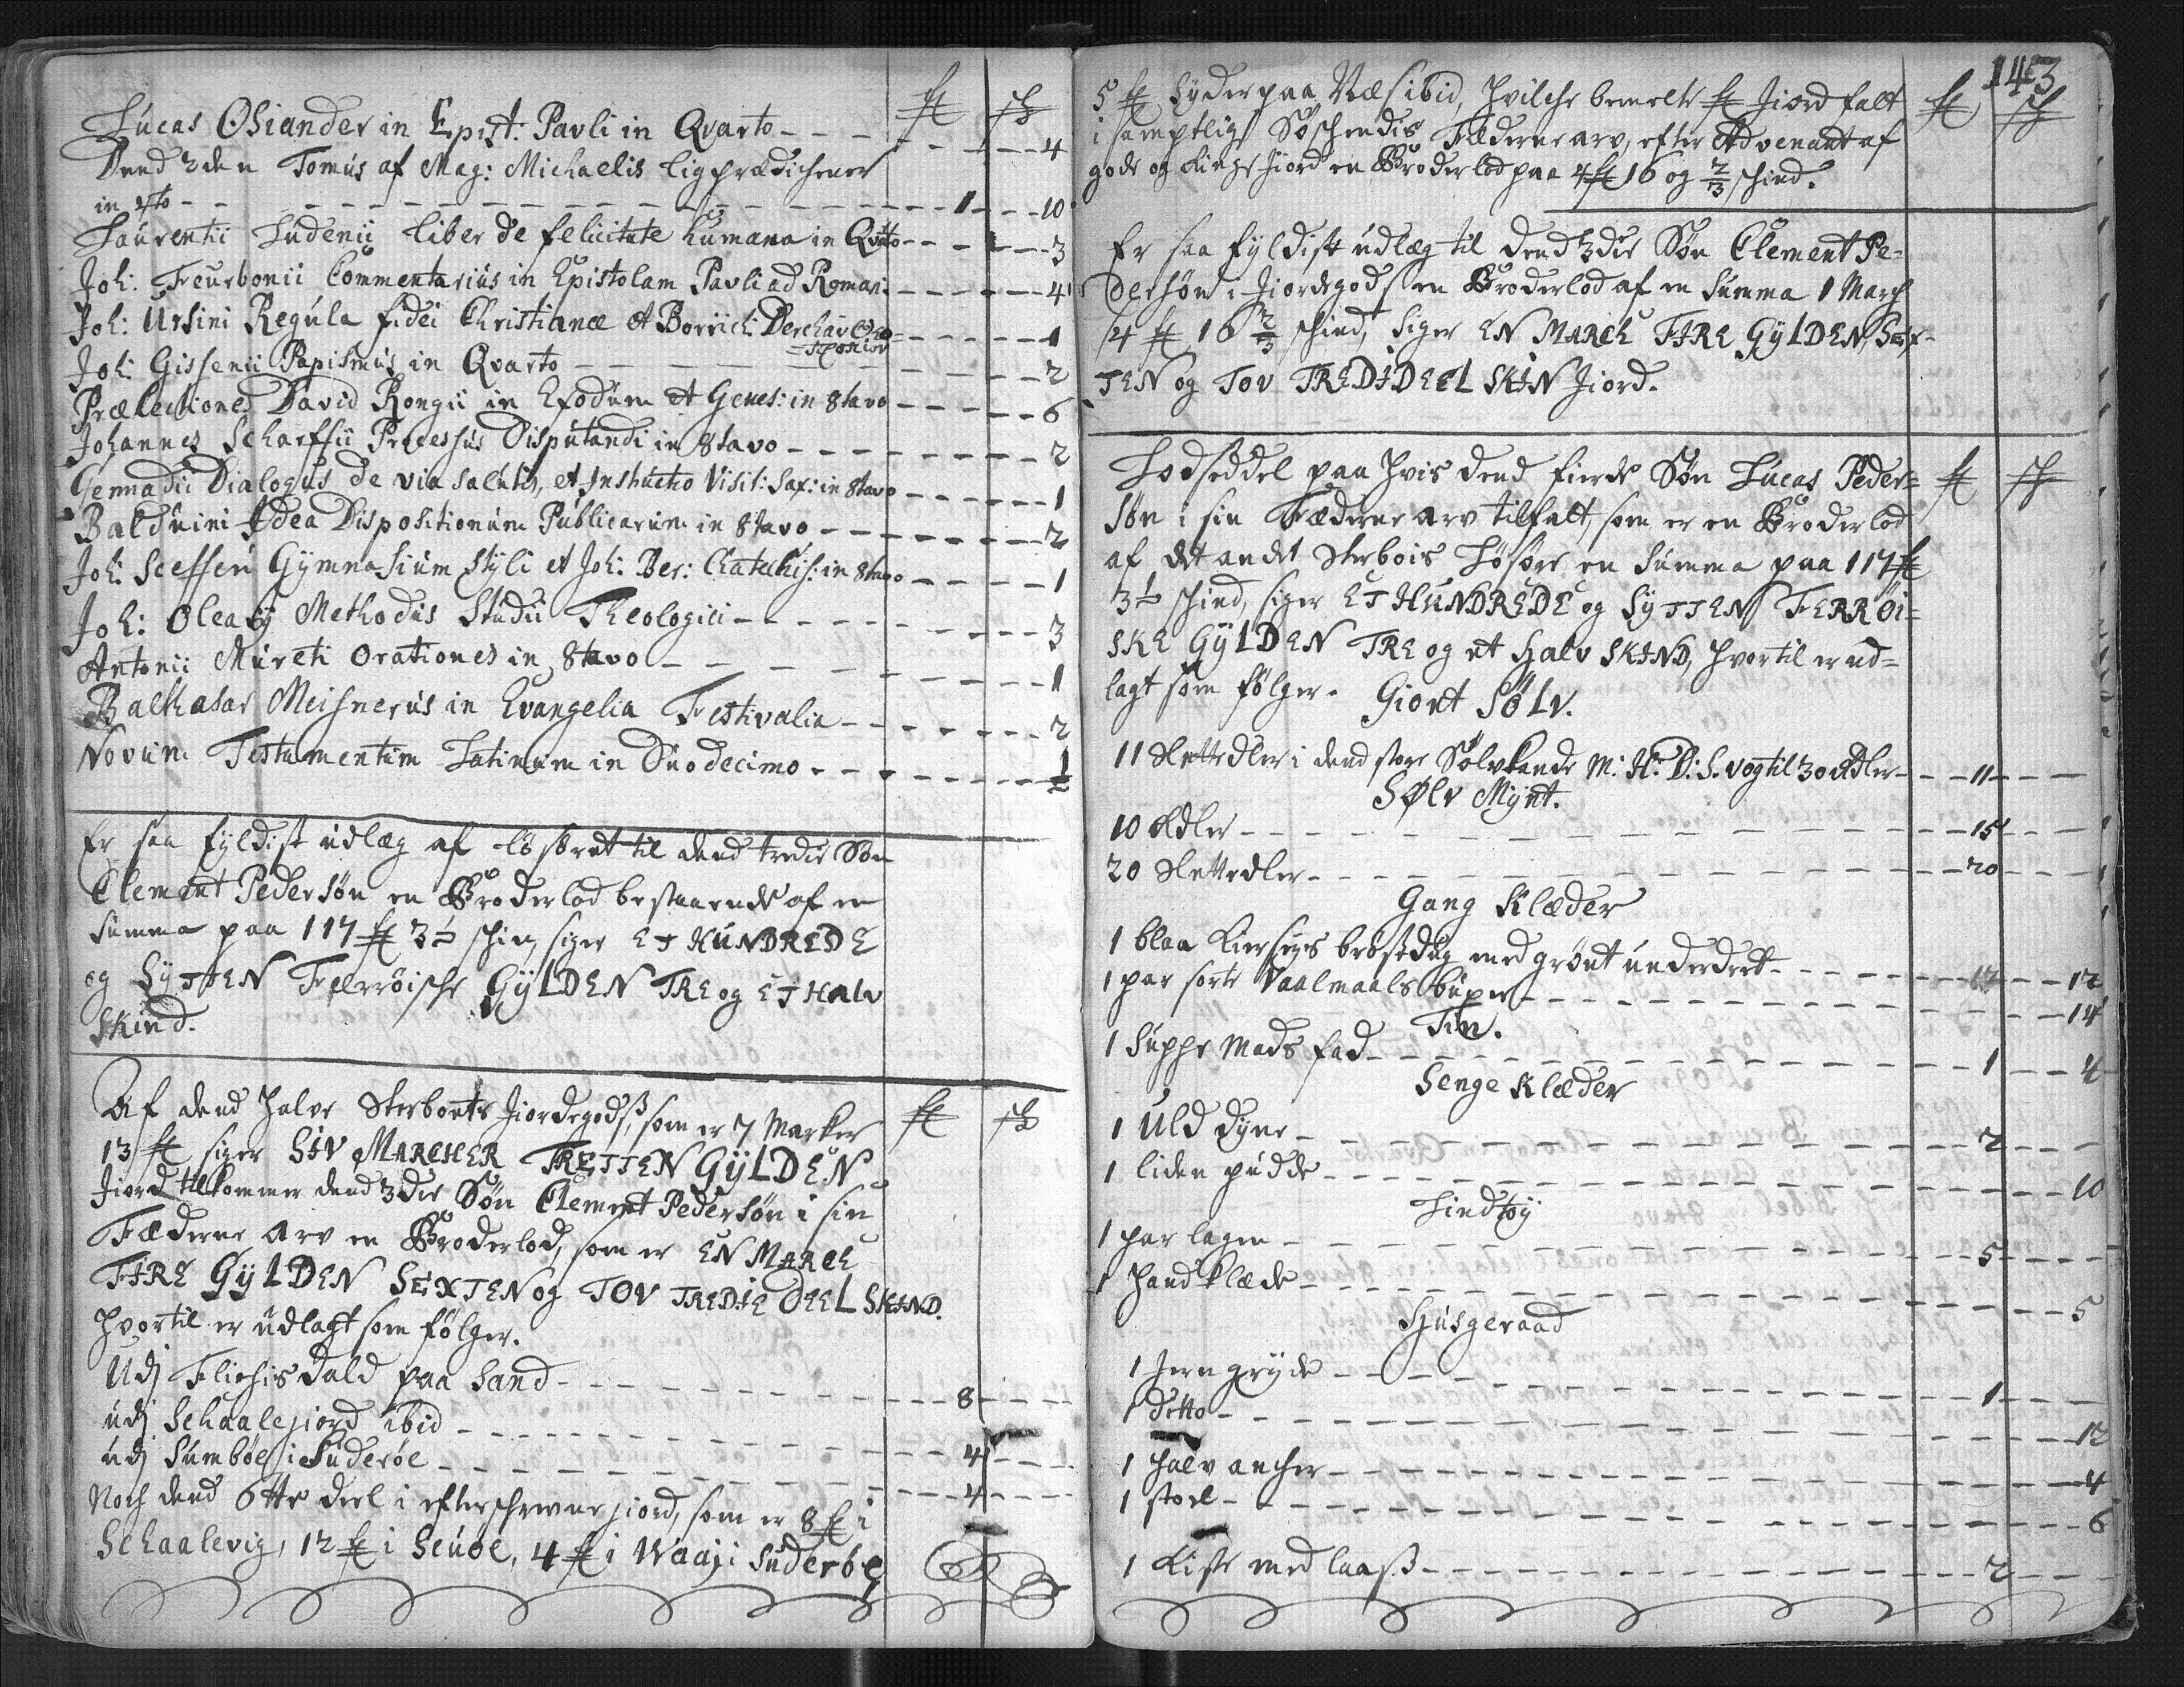 fl sk
Lucas Osiander in Epist: Pavli in Qvarto - - - - - - 4
Dend 2den Tomus af Mag: Michaelis ligprædichener
in 4to - - - - - - 1 - - - 10
Laurentii Ludenii liber de felicitate humana in Qvarto - - - - 3
Joh: Feurbonii Commentarius in Epistolam Pavli ad Roman: - - - - 4
Joh: Ursini Regula fidei Christianæ et Borrichi - - - - 1
Joh: Gissenii Papismus in Qvarto - - - - 2
Prælectiones David Rongii in Exodum et Genes: in 8tavo - - - - 6
Johannes Scharffii Processus Disputandi in 8tavo - - - - 2
Gennadii Dialogus de via salutis, et Instructio Visit: Sax: in 8tavo - - - - 1
Balduini Idea Dispositionum Publicarum in 8tavo - - - - 2
Joh: Sceffen Gymnasium styli et Joh: Ber: Chatechis: in 8tavo - - - - 1
Joh: Oleary Methodus Studii Theologici - - - - 3
Antonii Mureti Orationes in 8tavo - - - - 1
Balthasar Meisnerus in Evangelia Festivalia - - - - 2
Novum Testamentum Latinum in Duodecimo - - - - 1
Er saa fyldist udlæg af løsøret til dend tredie Søn
Clement Pedersøn en Broderlod bestaaende af en
Summa paa 117 fl 3½ skin, siger ET HUNDREDE
og SYTTEN Færrøische GYLDEN TRE og ET HALV
SKIND.
Af dend halve Sterboets Jiordegodß, som er 7 Marker fl sk
13 fl siger SIV MARCHER TRETTEN GYLDEN
Jiord tilkommer dend 3die Søn Clement Pedersøn i sin
Fæderne Arv en Broderlod, som er EN MARCK
FIRE GYLDEN SEXTEN og TOV TREDIE DEEL SKIND.
hvortil er udlagt som følger.
Udj Flichis dald paa Sand - - - - 8 - - -
udj Schaalejiord ibid - - - - 4 - - -
udj Sumböe i Suderöe - - - - 4 - - -
Noch dend 6tte deel i efterschrevne jiord, som er 8 fl i
Schaalevig, 12 fl i Scuoe, 4 fl i Waaj i Suderöe
143
5 fl Syder paa Næs ibid, hvilche bemelte fl Jiord falt fl sk
i samptlige Søschendis Fæderne arv, efter Advenant af
gode og Ringe Jiord en Broderlod paa 4 fl 16 og 2/3 skind.
Er saa fyldist udlæg til dend 3die Søn Clement Pe-
dersøn i Jiordegodß en Broderlod af en Summa 1 March
4 fl 16 2/3 skind, siger EN MARCK FIRE GYLDEN, SEX-
TEN og TOV TREDIDEEL SKIN Jiord.
Lodseddel paa hvis dend fierde Søn Lucas Peder= fl sk
søn i sin Fæderne arv tilfalt, som er en Broderlod
af det andet Sterbois Løsøre en Summa paa 117 fl
3½ skind, siger ET HUNDREDE og SYTTEN FERRØI=
SKE GYLDEN TRE og et Halv SKIND, hvortil er ud=
lagt som følger.
Giort SØLV.
11 Slettedler i dend store Sølvkande M: H: D: S. vog til 30 Rdler - - - 11 - - -
SØLV Mynt.
10 Rdler - - - - 15 - - -
20 Slettedler - - - - 20 - - -
Gang Klæder
1 blaa Kiersigs brøstdug med grønt underdrett - - - - 12
1 par sorte Vaalmaals buxer - - - - 14
Tin.
1 Suppe Mads fad - - - - 1 - - 4
Senge Klæder
1 Uld dyne - - - - 2 - - -
1 liden pudde - - - - 10
Lindtøy
1 par lagen - - - - 5 - - -
1 handklæde - - - - 5
Husgeraad
1 Jerngryde - - - - 1 - - -
1 ditto - - - - 12
1 halv ancher - - - - 4
1 stoel - - - - 6
1 Kiste med laaß - - - - 2 - - -